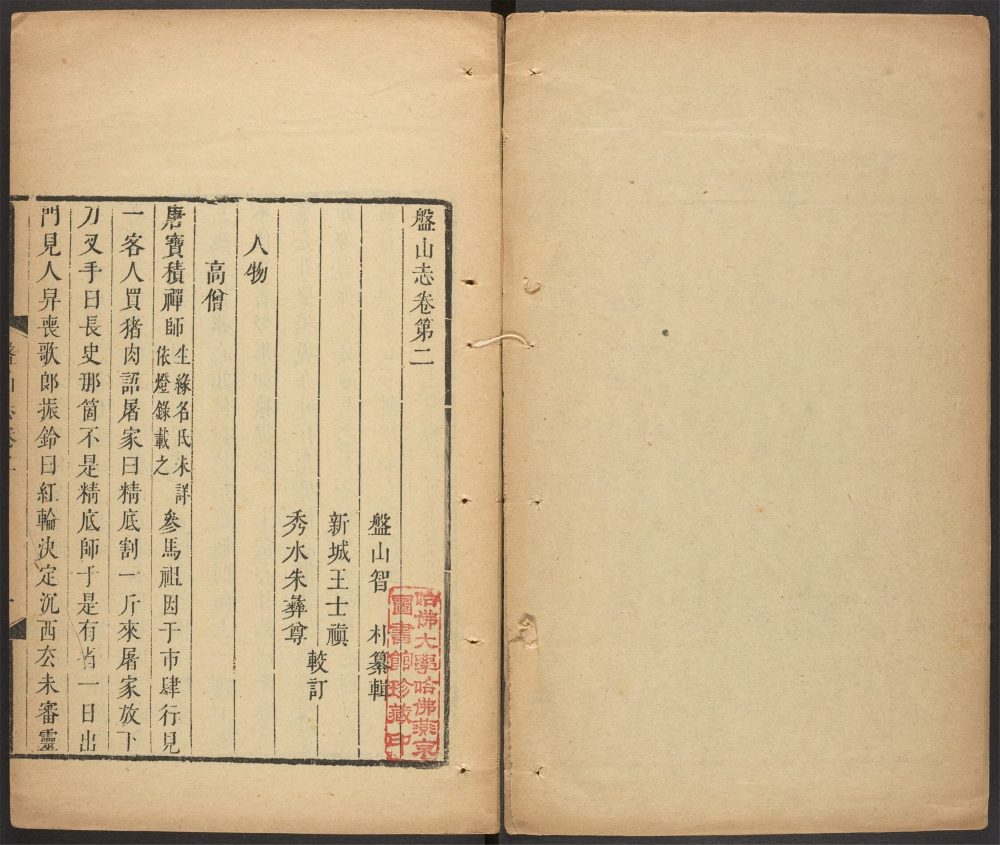 盤山志卷第二
盤山智　朴纂輯
新城王士禛
秀水朱彝尊
較訂
人物
高僧
唐寶積禪師生緣名氏未詳依燈錄載之參馬祖因于市肆行見
一客人買猪肉語屠家曰精底割一斤來屠家放下
刀叉手曰長史那箇不是精底師于是有省一日出
門見人舁喪歌郎振鈴曰紅輪決定沉西去未審靈
哈佛大學哈佛燕京
圖書館珍藏印